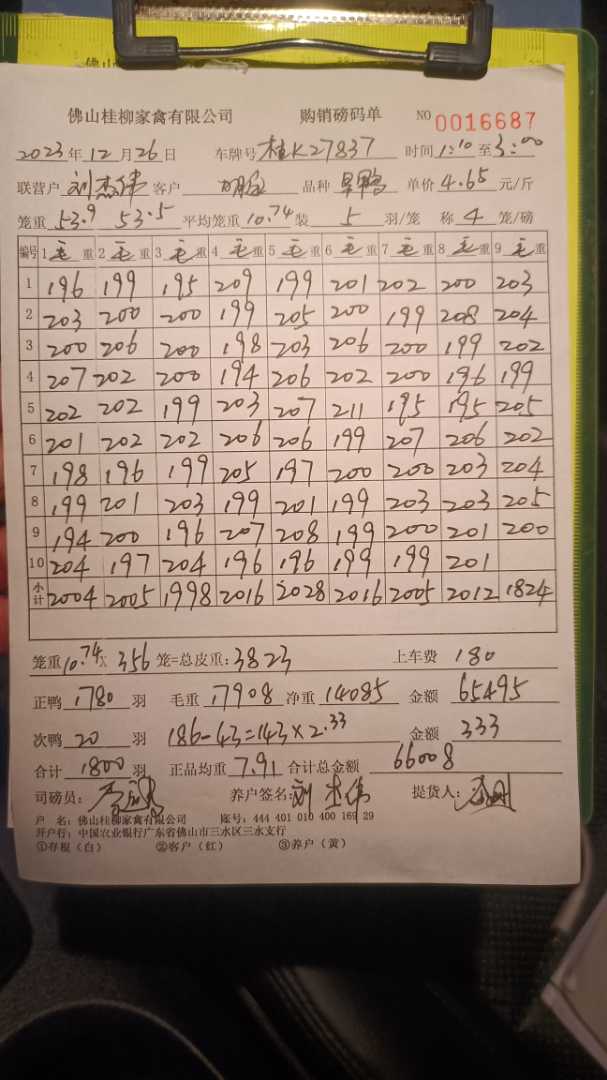 佛山桂柳家禽有限公司 购销磅码单 NO 0016687
2023年12月26日 车牌号 桂K27837 时间 1:10 至 3:00
联营户 刘杰伟 客户 品种 旱鸭 单价 4.65 元/斤
笼重 53.9 53.5 平均笼重 10.74 装 5 羽/笼 称 4 笼/磅
编号 1 毛重 2 毛重 3 毛重 4 毛重 5 毛重 6 毛重 7 毛重 8 毛重 9 毛重
1 196 199 195 209 199 201 202 200 203
2 203 200 200 199 205 200 199 208 204
3 200 206 200 198 203 206 200 199 202
4 207 202 200 194 206 202 200 196 199
5 202 202 199 203 207 211 195 195 205
6 201 202 202 206 206 199 207 206 202
7 198 196 199 205 197 200 200 203 204
8 199 201 203 199 201 199 203 203 205
9 194 200 196 207 208 199 200 201 200
10 204 197 204 196 196 199 199 201
小计 2004 2005 1998 2016 2028 2016 2005 2012 1824
笼重 10.74 x 356 笼=总皮重: 3823 上车费 180
正鸭 1780 羽 毛重 17908 净重 14085 金额 65495
次鸭 20 羽 186-43=143×2.33 金额 333
合计 1800 羽 正品均重 7.91 合计总金额 66008
司磅员: 养户签名: 刘杰伟 提货人:
户 名: 佛山桂柳家禽有限公司 账号: 444 401 010 400 169 29
开户行: 中国农业银行广东省佛山市三水区三水支行
①存根（白） ②客户（红） ③养户（黄）